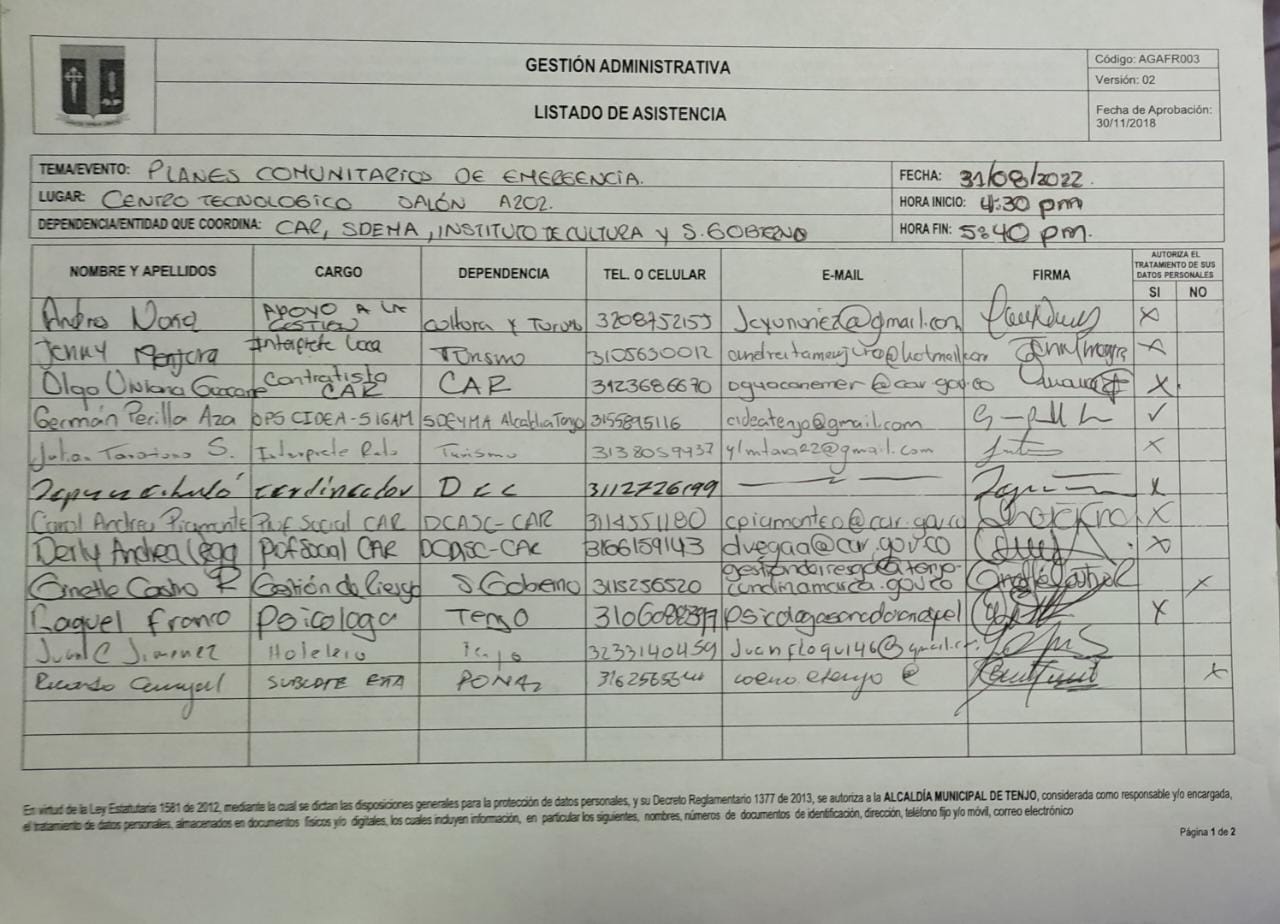 GESTIÓN ADMINISTRATIVA
LISTADO DE ASISTENCIA
Código: AGAFR003
Versión: 02
Fecha de Aprobación:
30/11/2018
TEMA/EVENTO: PLANES COMUNITARIOS DE EMERGENCIA.
FECHA: 31/08/2022.
LUGAR: CENTRO TECNOLOGICO SALÓN A202.
HORA INICIO: 4:30 pm
DEPENDENCIA/ENTIDAD QUE COORDINA: CAR, SDEMA, INSTITUTO DE CULTURA Y S. GOBIERNO
HORA FIN: 5:40 pm.
NOMBRE Y APELLIDOS CARGO DEPENDENCIA TEL. O CELULAR E-MAIL FIRMA AUTORIZA EL TRATAMIENTO DE SUS DATOS PERSONALES
SI NO
Andres APOYO A LA GESTION Cultura y Turismo 3208752155 X
Jenny Interprete Turismo 3105630012 X
Olga Viviana Contratista CAR CAR 3123686670 X
Germán Perilla Aza OPS CIDEA-SIGAM SDEYMA Alcaldia Tenjo 3155895116 cideatenjo@gmail.com ✓
Julian S. Interprete Turismo 3138059737 ylmtara22@gmail.com X
DCC 3112726199 X
Carol Andrea Piamonte Prof Social CAR DCASC-CAR 3114551180 cpiamonteo@car.gov.co X
Derly Andrea Vega Prof Social CAR DCASC-CAR 3166159143 dvegaa@car.gov.co X
Castro R Gestión de Riesgo S Gobierno 3115256520 X
Raquel Franco Psicologa Tenjo X
Juan C Jimenez Hotelero Tenjo 3233140459 X
Ricardo PONAL X
En virtud de la Ley Estatutaria 1581 de 2012, mediante la cual se dictan las disposiciones generales para la protección de datos personales, y su Decreto Reglamentario 1377 de 2013, se autoriza a la ALCALDÍA MUNICIPAL DE TENJO, considerada como responsable y/o encargada,
el tratamiento de datos personales, almacenados en documentos físicos y/o digitales, los cuales incluyen información, en particular los siguientes, nombres, números de documentos de identificación, dirección, teléfono fijo y/o móvil, correo electrónico
Página 1 de 2